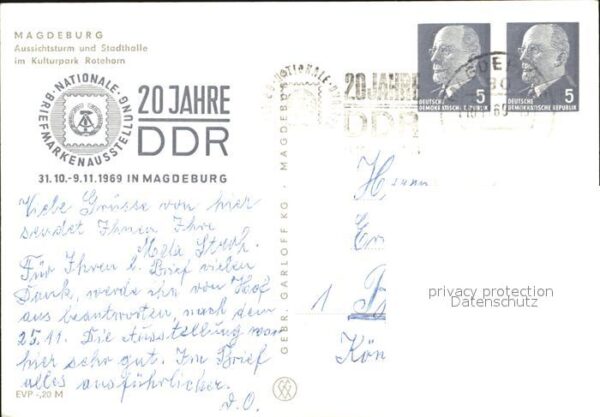 MAGDEBURG
Aussichtsturm und Stadthalle
im Kulturpark Rotehorn
NATIONALE
BRIEFMARKENAUSSTELLUNG
20 JAHRE
DDR
31.10.-9.11.1969 IN MAGDEBURG
20 JAHRE
DDR
DEUTSCHE
DEMOKRATISCHE REPUBLIK
5
DEUTSCHE
DEMOKRATISCHE REPUBLIK
5
Liebe Grüsse von hier
sendet Ihnen Ihre
Für Ihren l. Brief vielen
Dank, werde ihn von
aus beantworten, nach dem
25.11. Die Ausstellung war
hier sehr gut. Im Brief
alles ausführlicher.
D.O.
EVP -,20 M
GEBR. GARLOFF KG · MAGDEBURG
Herrn
1
Kön
privacy protection
Datenschutz